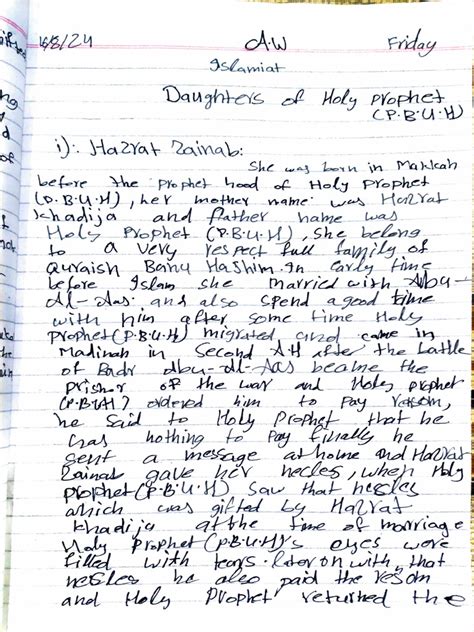 16/8/24 A.W Friday
Islamiat
Daughters of Holy prophet
(P.B.U.H)
i): Hazrat Zainab:
She was born in Makkah
before the prophet hood of Holy Prophet
(P.B.U.H), her mother name was Hazrat
Khadija and father name was
Holy Prophet (P.B.U.H), She belong
to a very respect full family of
Quraish Banu Hashim. In early time
before Islam she married with Abu-
Al-Aas, and also spend a good time
with him after some time Holy
Prophet (P.B.U.H) migrated and came in
Madinah in second AH after the battle
of Badr abu-al-Aas became the
prisner of the war and Holy prophet
(P.B.U.H) ordered him to pay ransom,
he said to Holy Prophet that he
has nothing to pay finally he
sent a message at home and Hazrat
Zainab gave her necles, when Holy
prophet (P.B.U.H) saw that necles
which was gifted by Hazrat
Khadija at the time of marriage
Holy Prophet (P.B.U.H)'s eyes were
filled with tears. later on with, that
necles he also paid the resom
and Holy Prophet returned the